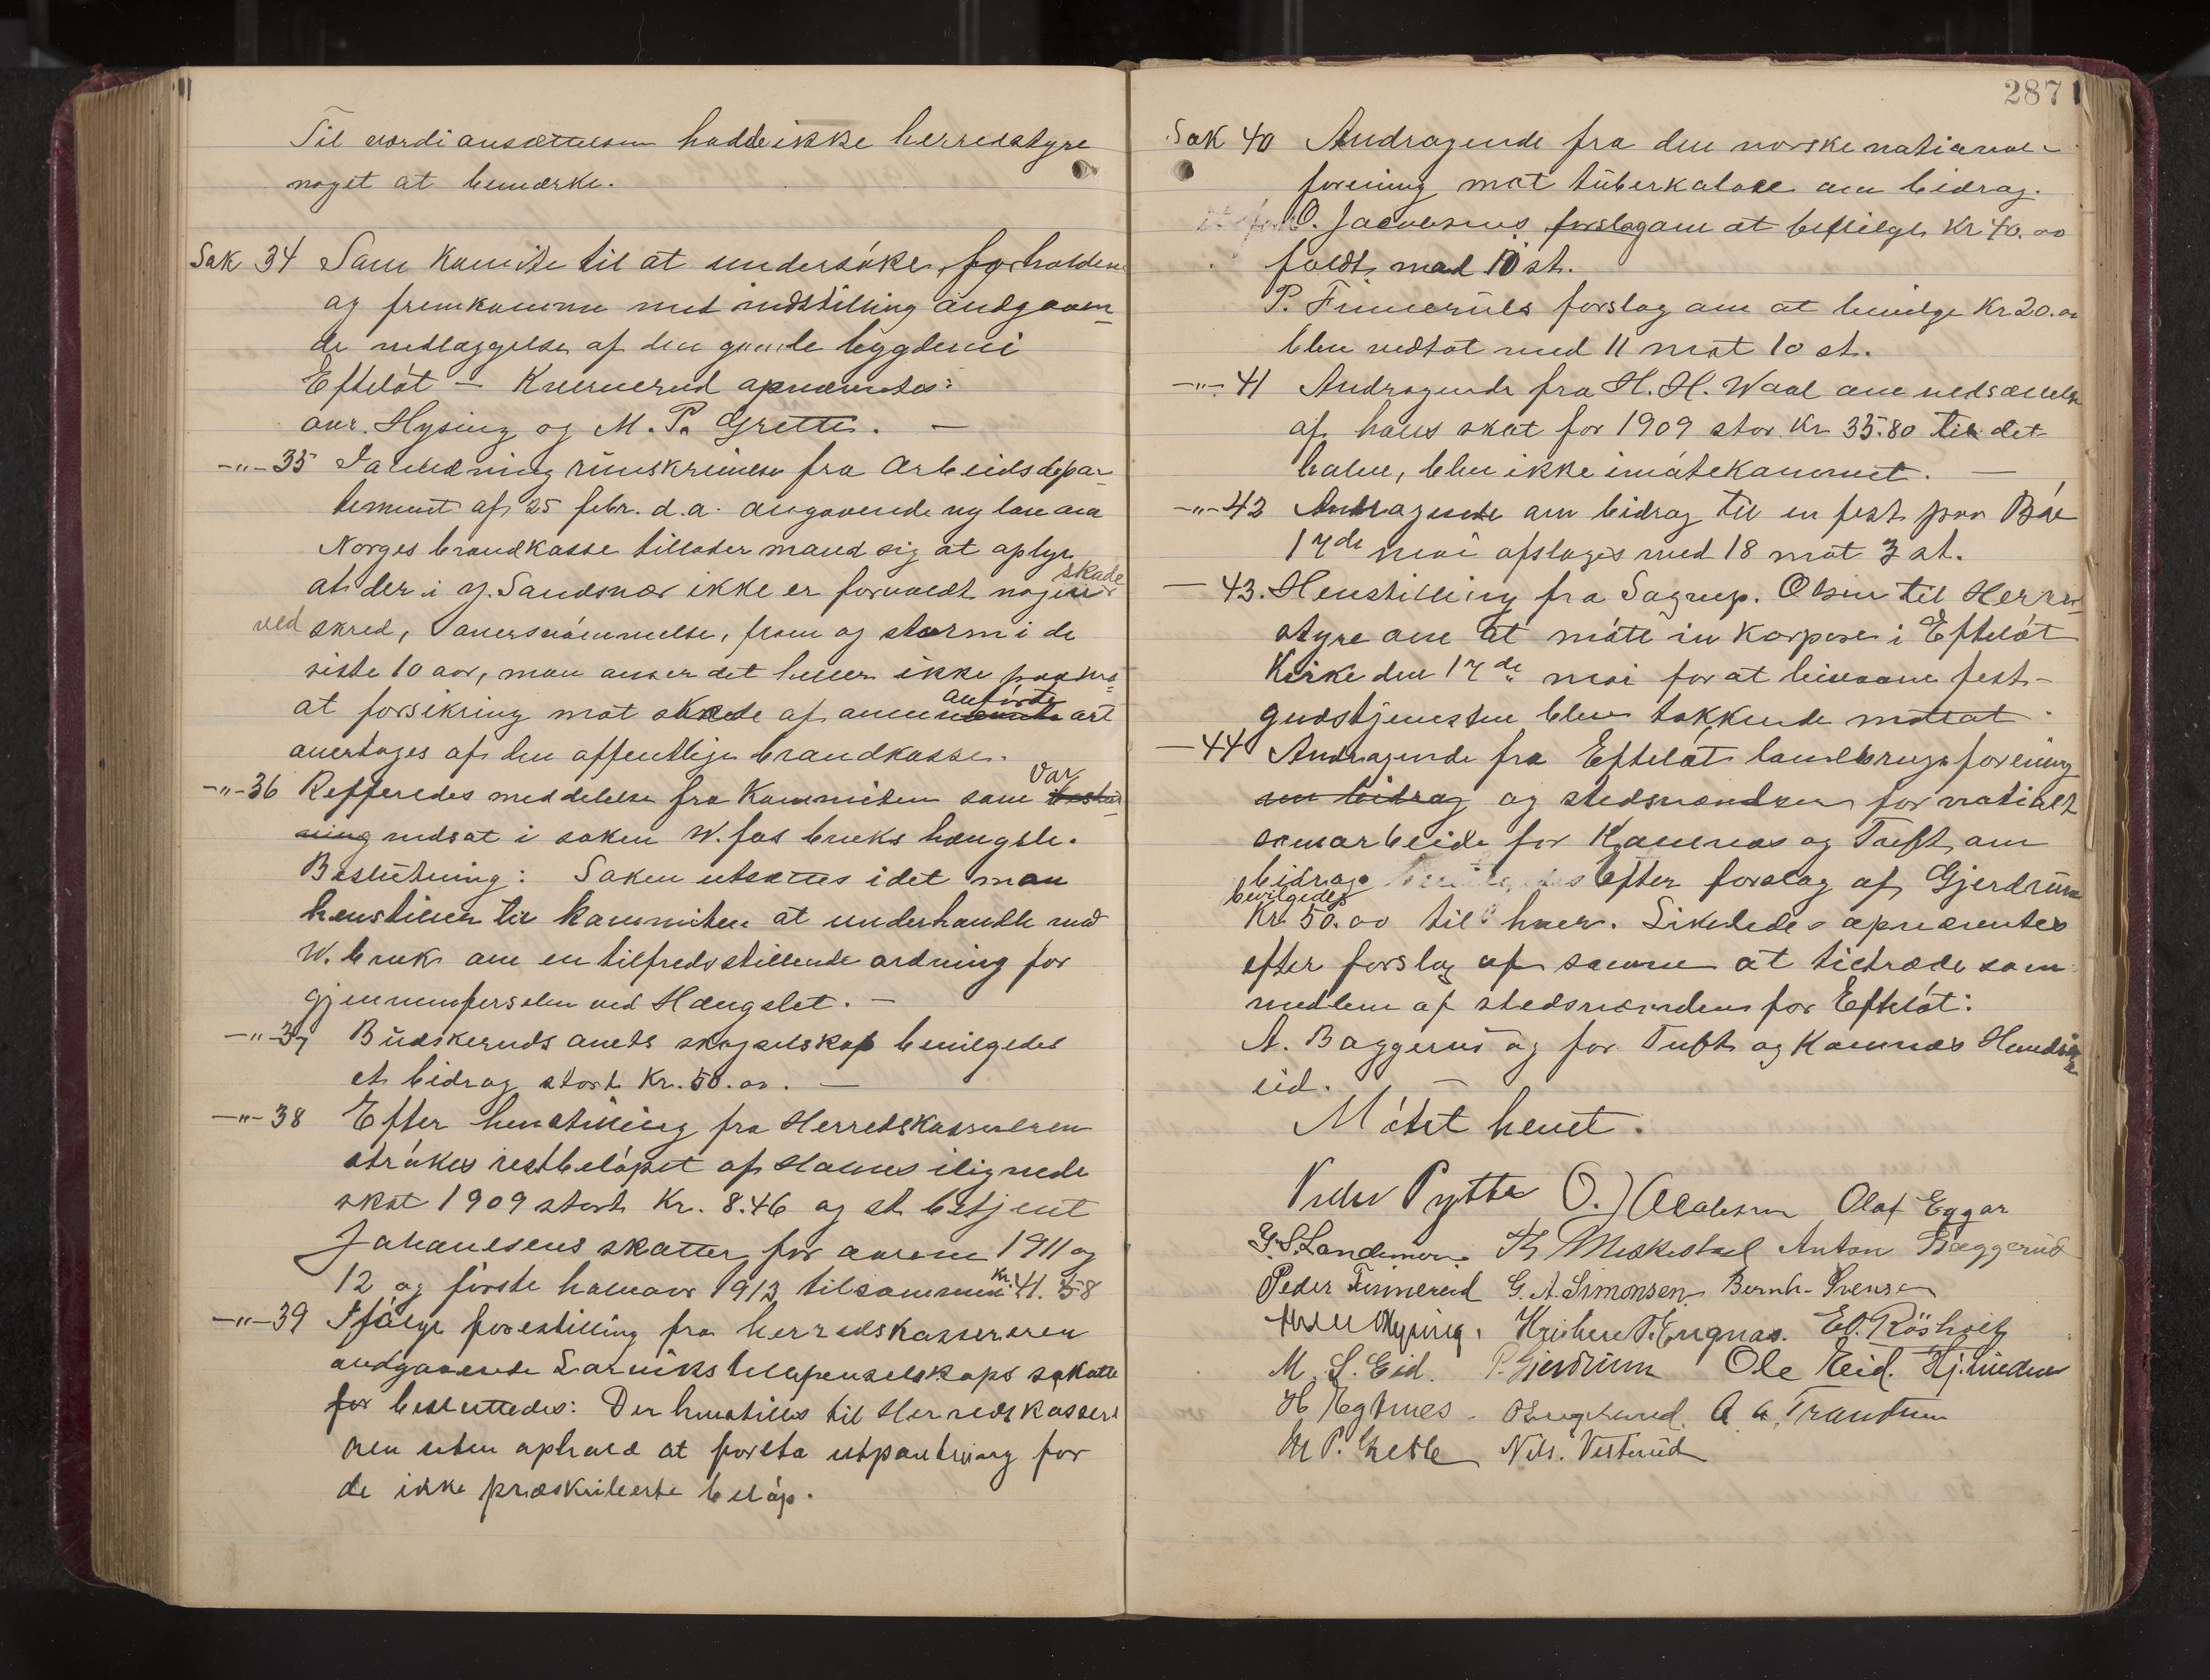 Til verdiansættelsen hadde ikke herredstyre
noget at bemærke.
Sak 34 Som komite til at undersøke forholdene
og fremkomme med indstilling andgaaen-
de nedlæggelse af den gamle bygdevei
Efteløt – Kvernerud opnævntes:
ovr. Hysing og M. P. Grette. —
-"- 35 I anledning rundskrivelse fra Arbeidsdepar-
tement af 25 febr. d.a. angaaende ny lov om
Norges brandkasse tillater mand sig at oplyse
at der i y. Sandsvær ikke er forvoldt nogen skade
ved skred, oversvømmelse, flom og storm i de
siste 10 aar, man anser det heller ikke paakræ-
at forsikring mot skade af anførte art
overtages af den offentlige brandkasse.
-"- 36 Refferedes meddelelse fra Kommiteen som var
nedsat i saken W. fos bruks hængsle.
Beslutning: Saken utsættes idet man
henstiller til kommiteen at underhandle med
W. bruk om en tilfredsstillende ordning for
gjennemferselen ved Hængslet. —
-"- 37 Buskeruds amts skogselskap bevilgedes
et bidrag stort Kr. 50.00. —
-"- 38 Efter henstilling fra Herredskassereren
strøkes restbeløpet af Holmes ilignede
skat 1909 stort Kr. 8.46 og st. bstjent
Johansens skatter for aarene 1911 og
12 og første halvaar 1913 tilsammen Kr. 41.58
-"- 39 Ifølge forestilling fra herredskassereren
andgaaende Larviks tømmerselskaps skatte
for besluttedes: Der henstilles til Herredskassere
ren uten ophold at foreta utpantning for
de ikke præskriberte beløp.
287
Sak 40 Andragende fra den norske national-
forening mot tuberkulose om bidrag.
O. Jacobsens forslag om at bevilge Kr 40.00
faldt med 10 st.
P. Finneruds forslag om at bevilge Kr 20.00
blev vedtat med 11 mot 10 st.
-"- 41 Andragende fra H. H. Waal om nedsættelse
af hans skat for 1909 stor Kr 35.80 til det
halve, blev ikke imøtekommet. —
-"- 42 Andragende om bidrag til en fest paa
17de mai afsloges med 18 mot 3 st.
— 43. Henstilling fra Sognep. Olsen til Herreds-
styre om at møte in korpore i Efteløt
Kirke den 17de mai for at bivaane fest-
gudstjenesten blev takkende motat.
— 44 Andragende fra Efteløt landbruksforening
om bidrag og stedsnævnden for nationalt
samarbeide for Komnes og Tuft om
bidrag. Efter forslag af Gjerdrum
bevilgedes
Kr. 50.00 til hver. Likeledes opnævntes
efter forslag af samme at tiltræde som
medlem af stedsnævnden for Efteløt:
A. Baggerud og for Tuft og Komnes Hendrik
eid.
Møtet hevet.
Peder Prytte O. Jacobsen Olaf Eggar
G. S. Landsmoen Anton Baggerud
Peder Finnerud G. A. Simonsen Bernh. Svensen
Hysing. Kristian P. Engnæs. Ed. Røsholt
M. S. Eid. P. Gjerdrum Ole Eid.
H. Hegtnes A. G. Trandum
M P. Grette Nils. Vesterud